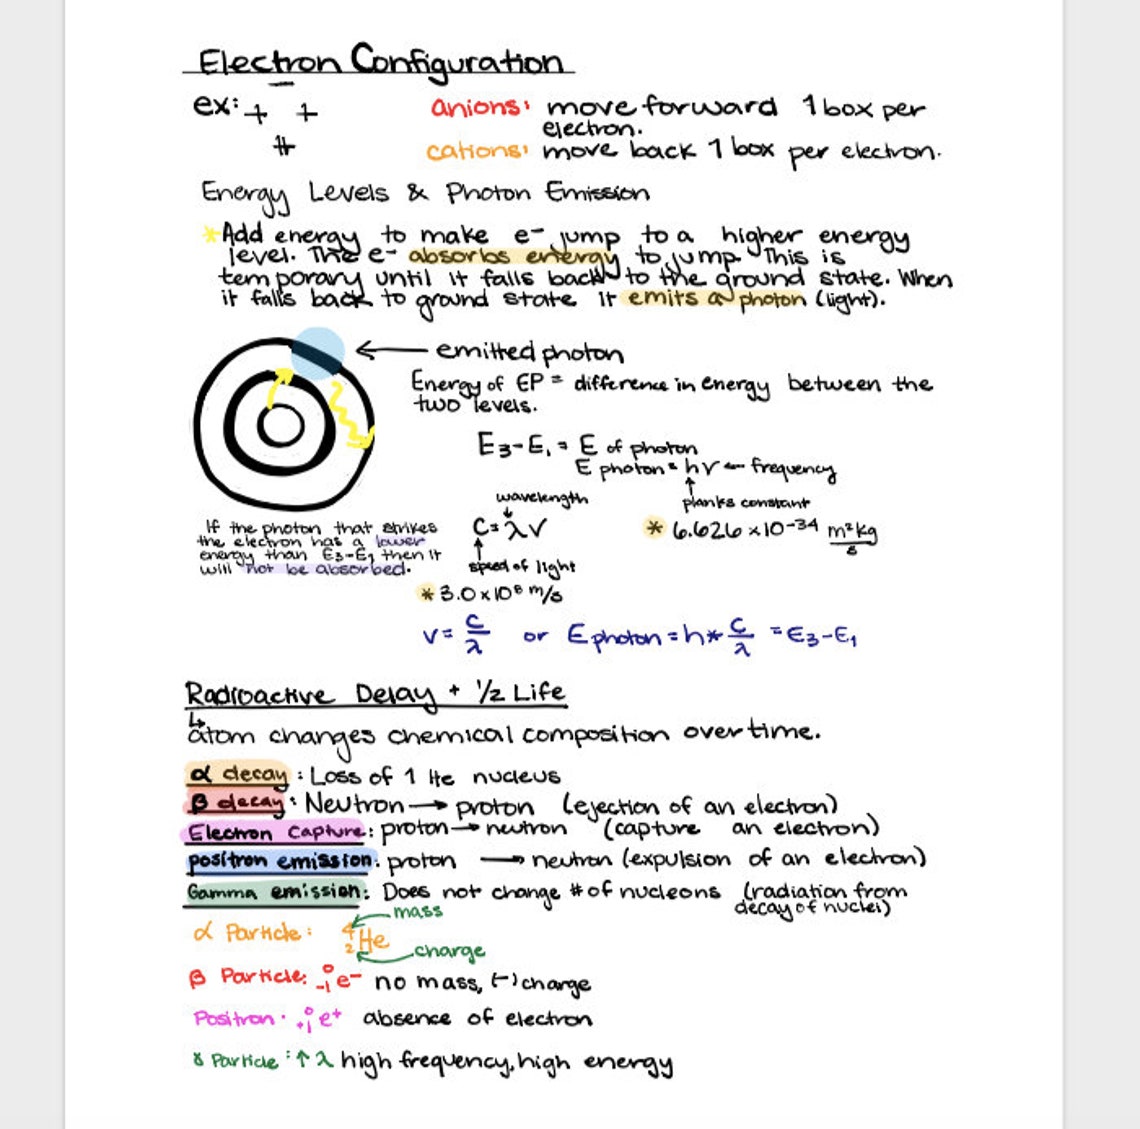 Electron Configuration
ex: + +
#
anions: move forward 1 box per
electron.
cations: move back 1 box per electron.
Energy Levels & Photon Emission
*Add energy to make e⁻ jump to a higher energy
level. The e⁻ absorbs energy to jump. This is
temporary until it falls back to the ground state. When
it falls back to ground state it emits a photon (light).
← emitted photon
Energy of EP = difference in energy between the
two levels.
E₃-E₁ = E of photon
E photon = hv ← frequency
planks constant
* 6.626 x 10⁻³⁴ m²kg/s
wavelength
C=λv
speed of light
* 3.0 x 10⁸ m/s
If the photon that strikes
the electron has a lower
energy than E₃-E₁ then it
will not be absorbed.
v = c/λ or E photon = h* c/λ = E₃-E₁
Radioactive Delay + 1/2 Life
↳ atom changes chemical composition over time.
α decay: Loss of 1 He nucleus
β decay: Neutron → proton (ejection of an electron)
Electron Capture: proton → neutron (capture an electron)
positron emission: proton → neutron (expulsion of an electron)
Gamma emission: Does not change # of nucleons (radiation from
decay of nuclei)
α Particle: ⁴₂He mass
charge
β Particle: ⁰₋₁e⁻ no mass, (-) charge
Positron: ⁰₊₁e⁺ absence of electron
γ Particle: ↑λ high frequency, high energy